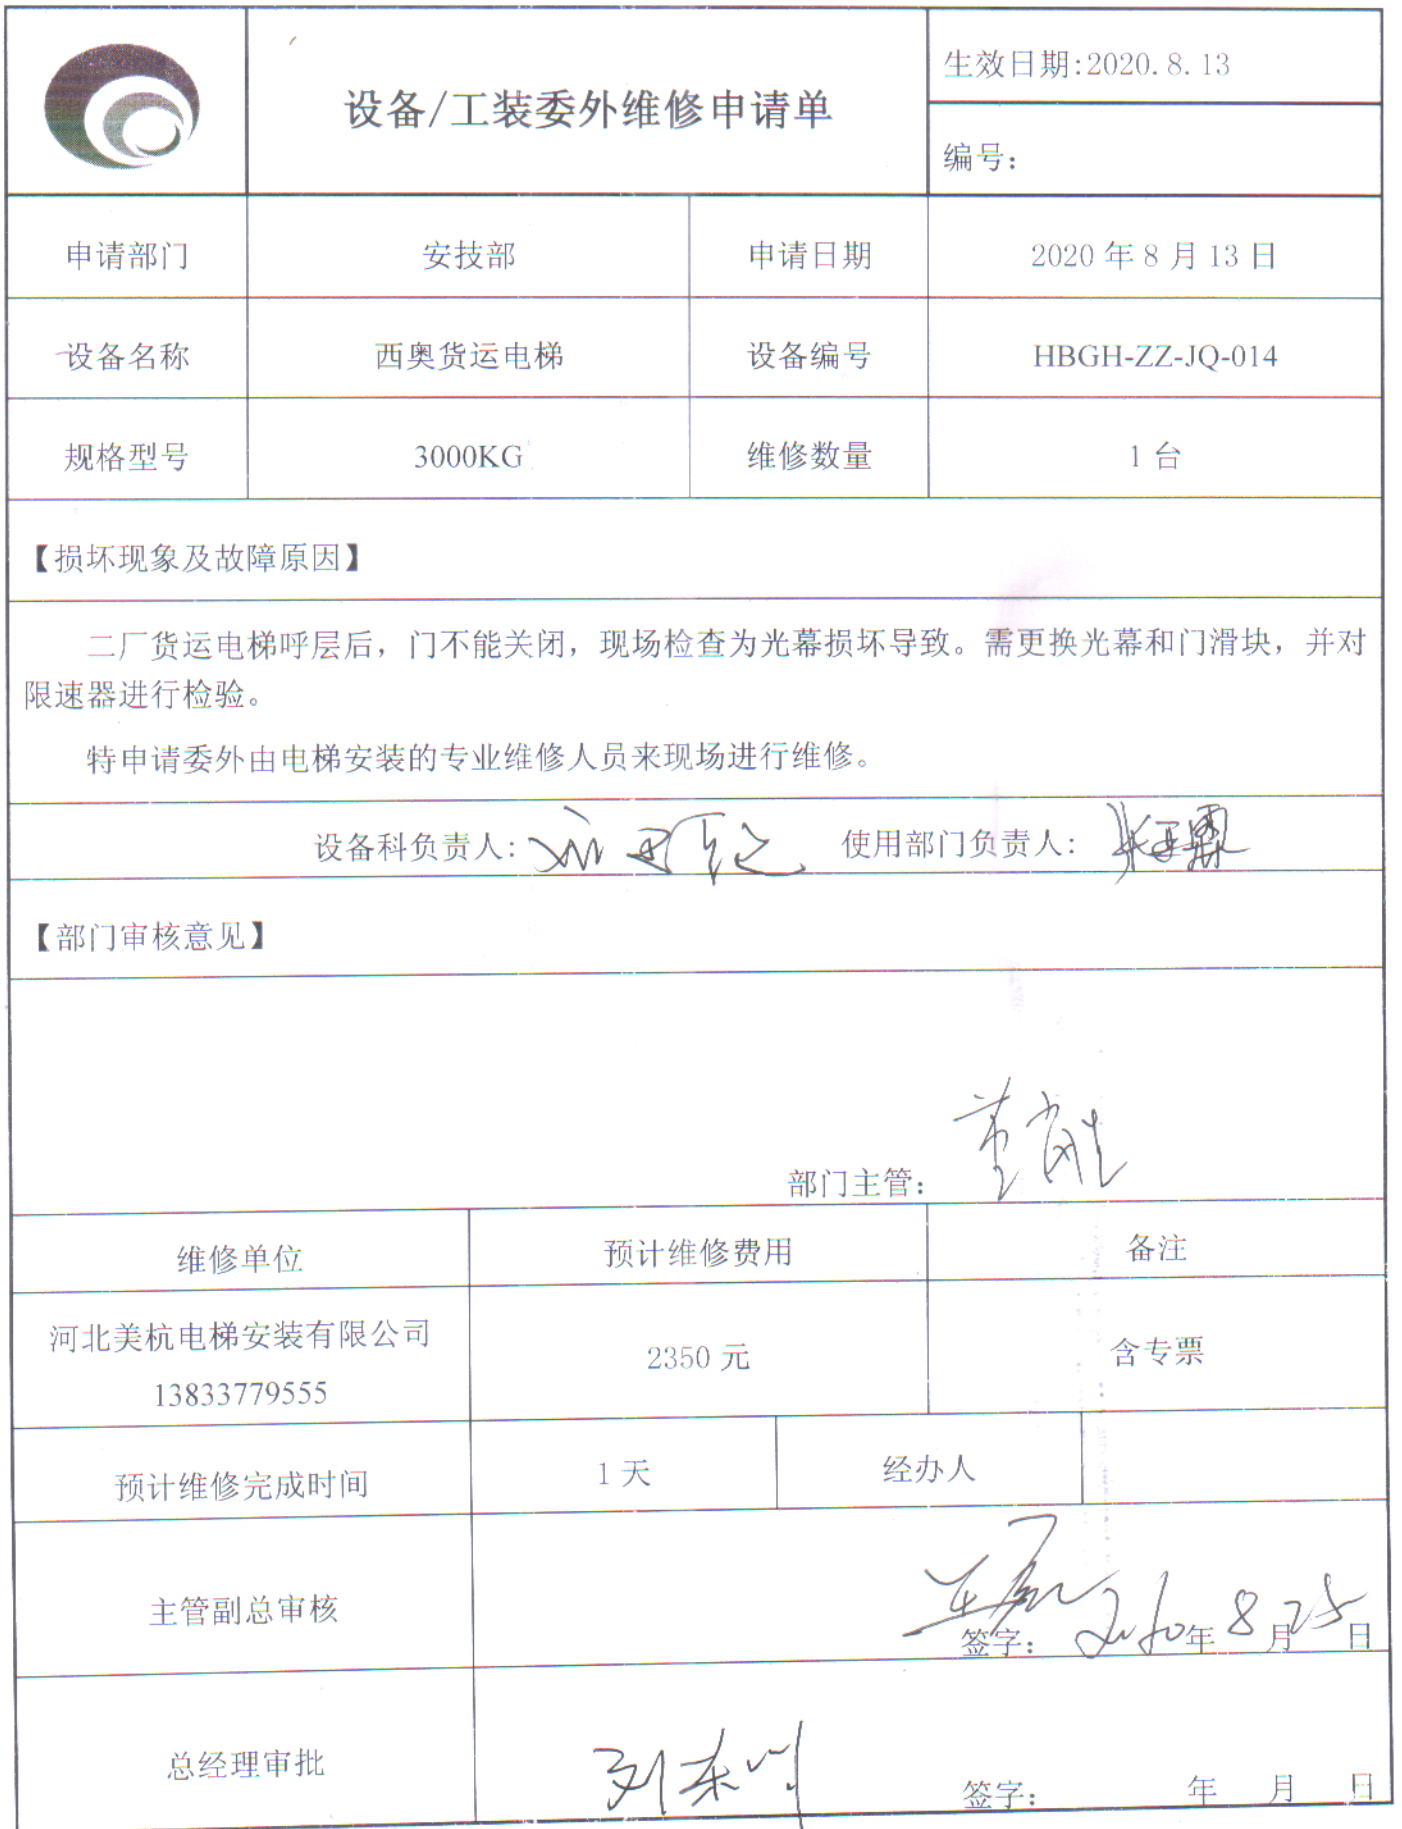 设备/工装委外维修申请单
生效日期:2020.8.13
编号：
申请部门 安技部 申请日期 2020 年 8 月 13 日
设备名称 西奥货运电梯 设备编号 HBGH-ZZ-JQ-014
规格型号 3000KG 维修数量 1 台
【损坏现象及故障原因】
二厂货运电梯呼层后，门不能关闭，现场检查为光幕损坏导致。需更换光幕和门滑块，并对
限速器进行检验。
特申请委外由电梯安装的专业维修人员来现场进行维修。
设备科负责人： 使用部门负责人：
【部门审核意见】
部门主管：
维修单位 预计维修费用 备注
河北美杭电梯安装有限公司
13833779555
2350 元
含专票
预计维修完成时间 1 天 经办人
主管副总审核
签字： 2020年 8 月 25 日
总经理审批 刘东川 签字： 年 月 日